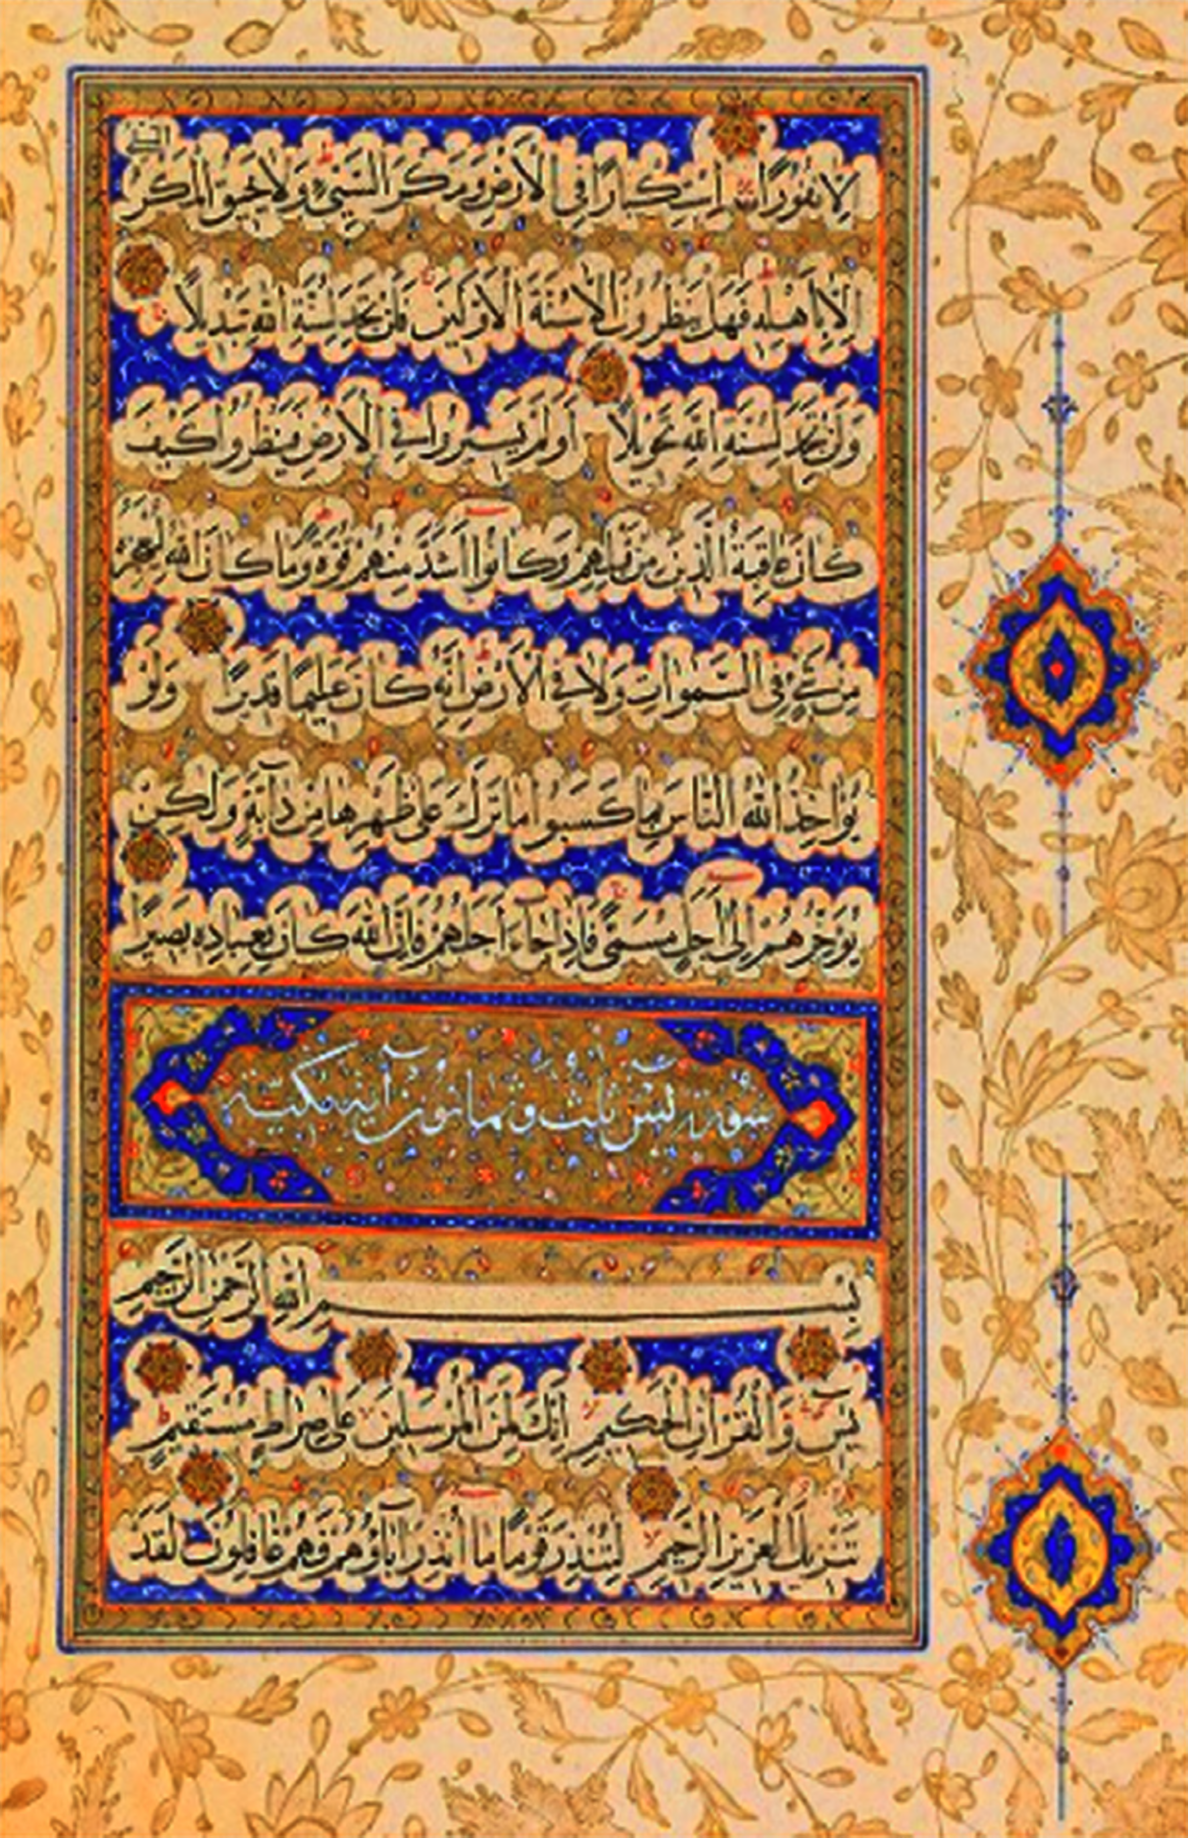 إلا نفورا استكبارا في الأرض ومكر السيئ ولا يحيق المكر السيئ
إلا بأهله فهل ينظرون إلا سنة الأولين فلن تجد لسنة الله تبديلا
ولن تجد لسنة الله تحويلا أولم يسيروا في الأرض فينظروا كيف
كان عاقبة الذين من قبلهم وكانوا أشد منهم قوة وما كان الله ليعجزه
من شيء في السموات ولا في الأرض إنه كان عليما قديرا ولو
يؤاخذ الله الناس بما كسبوا ما ترك على ظهرها من دابة ولكن
يؤخرهم إلى أجل مسمى فإذا جاء أجلهم فإن الله كان بعباده بصيرا
سورة يس ثلث وثمانون آية مكية
بسم الله الرحمن الرحيم
يس والقرآن الحكيم إنك لمن المرسلين على صراط مستقيم
تنزيل العزيز الرحيم لتنذر قوما ما أنذر آباؤهم فهم غافلون لقد